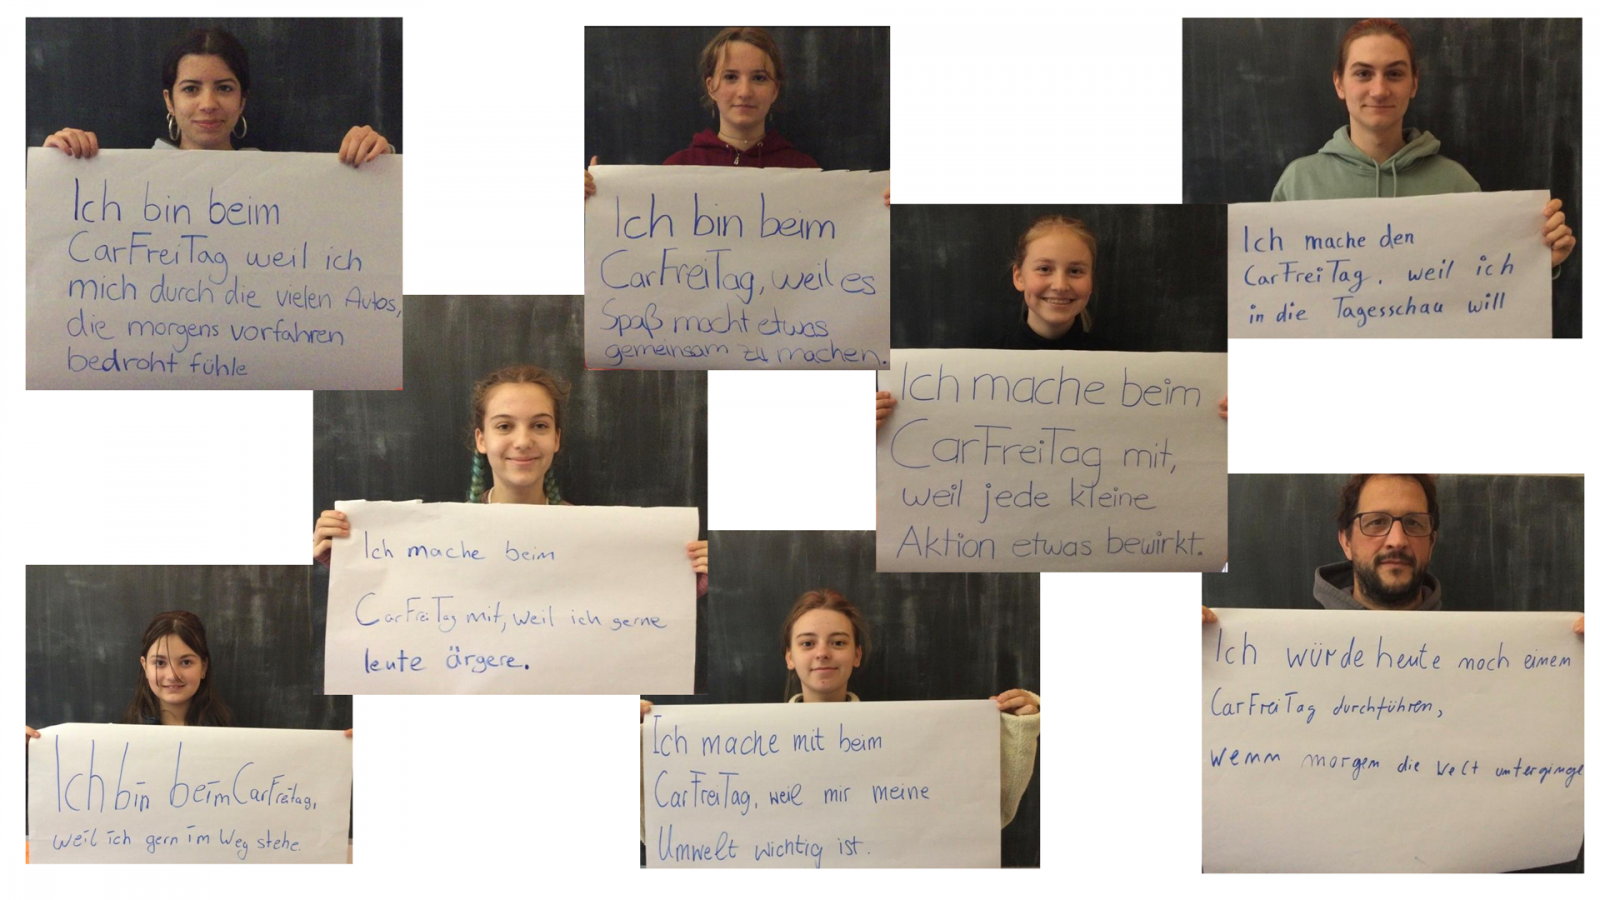 Ich bin beim
CarFreiTag weil ich
mich durch die vielen Autos,
die morgens vorfahren
bedroht fühle
Ich bin beim
CarFreiTag, weil es
Spaß macht etwas
gemeinsam zu machen.
Ich mache den
CarFreiTag, weil ich
in die Tagesschau will
Ich mache beim
CarFreiTag mit,
weil jede kleine
Aktion etwas bewirkt.
Ich mache beim
CarFreiTag mit, weil ich gerne
leute ärgere.
Ich bin beim CarFreitag,
weil ich gern im Weg stehe.
Ich mache mit beim
CarFreiTag, weil mir meine
Umwelt wichtig ist.
Ich würde heute noch einen
CarFreiTag durchführen,
wenn morgen die Welt unterginge